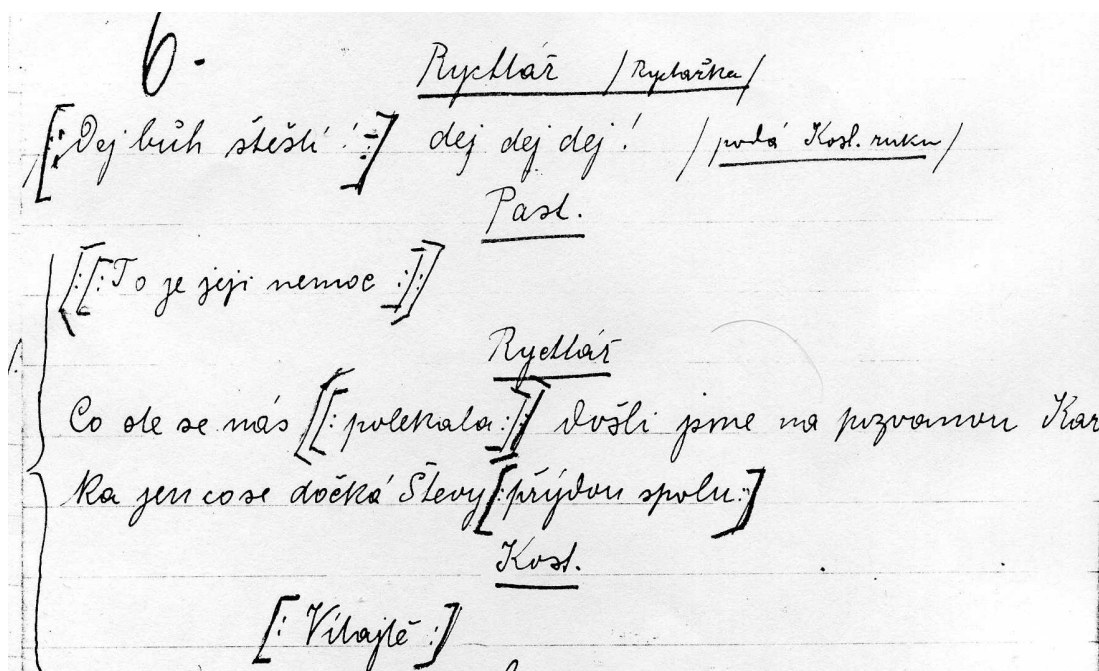 6.
Rychtář /Rychtářka/
[: Dej bůh štěstí! :] dej dej dej! /podá Kost. ruku/
Past.
[[: To je její nemoc :]]
Rychtář
Co ste se nás [[: polekala :]] došli jsme na pozvanou Kar
ka jen co se dočká Števy [: přijdou spolu :]
Kost.
[: Vítajtě :]